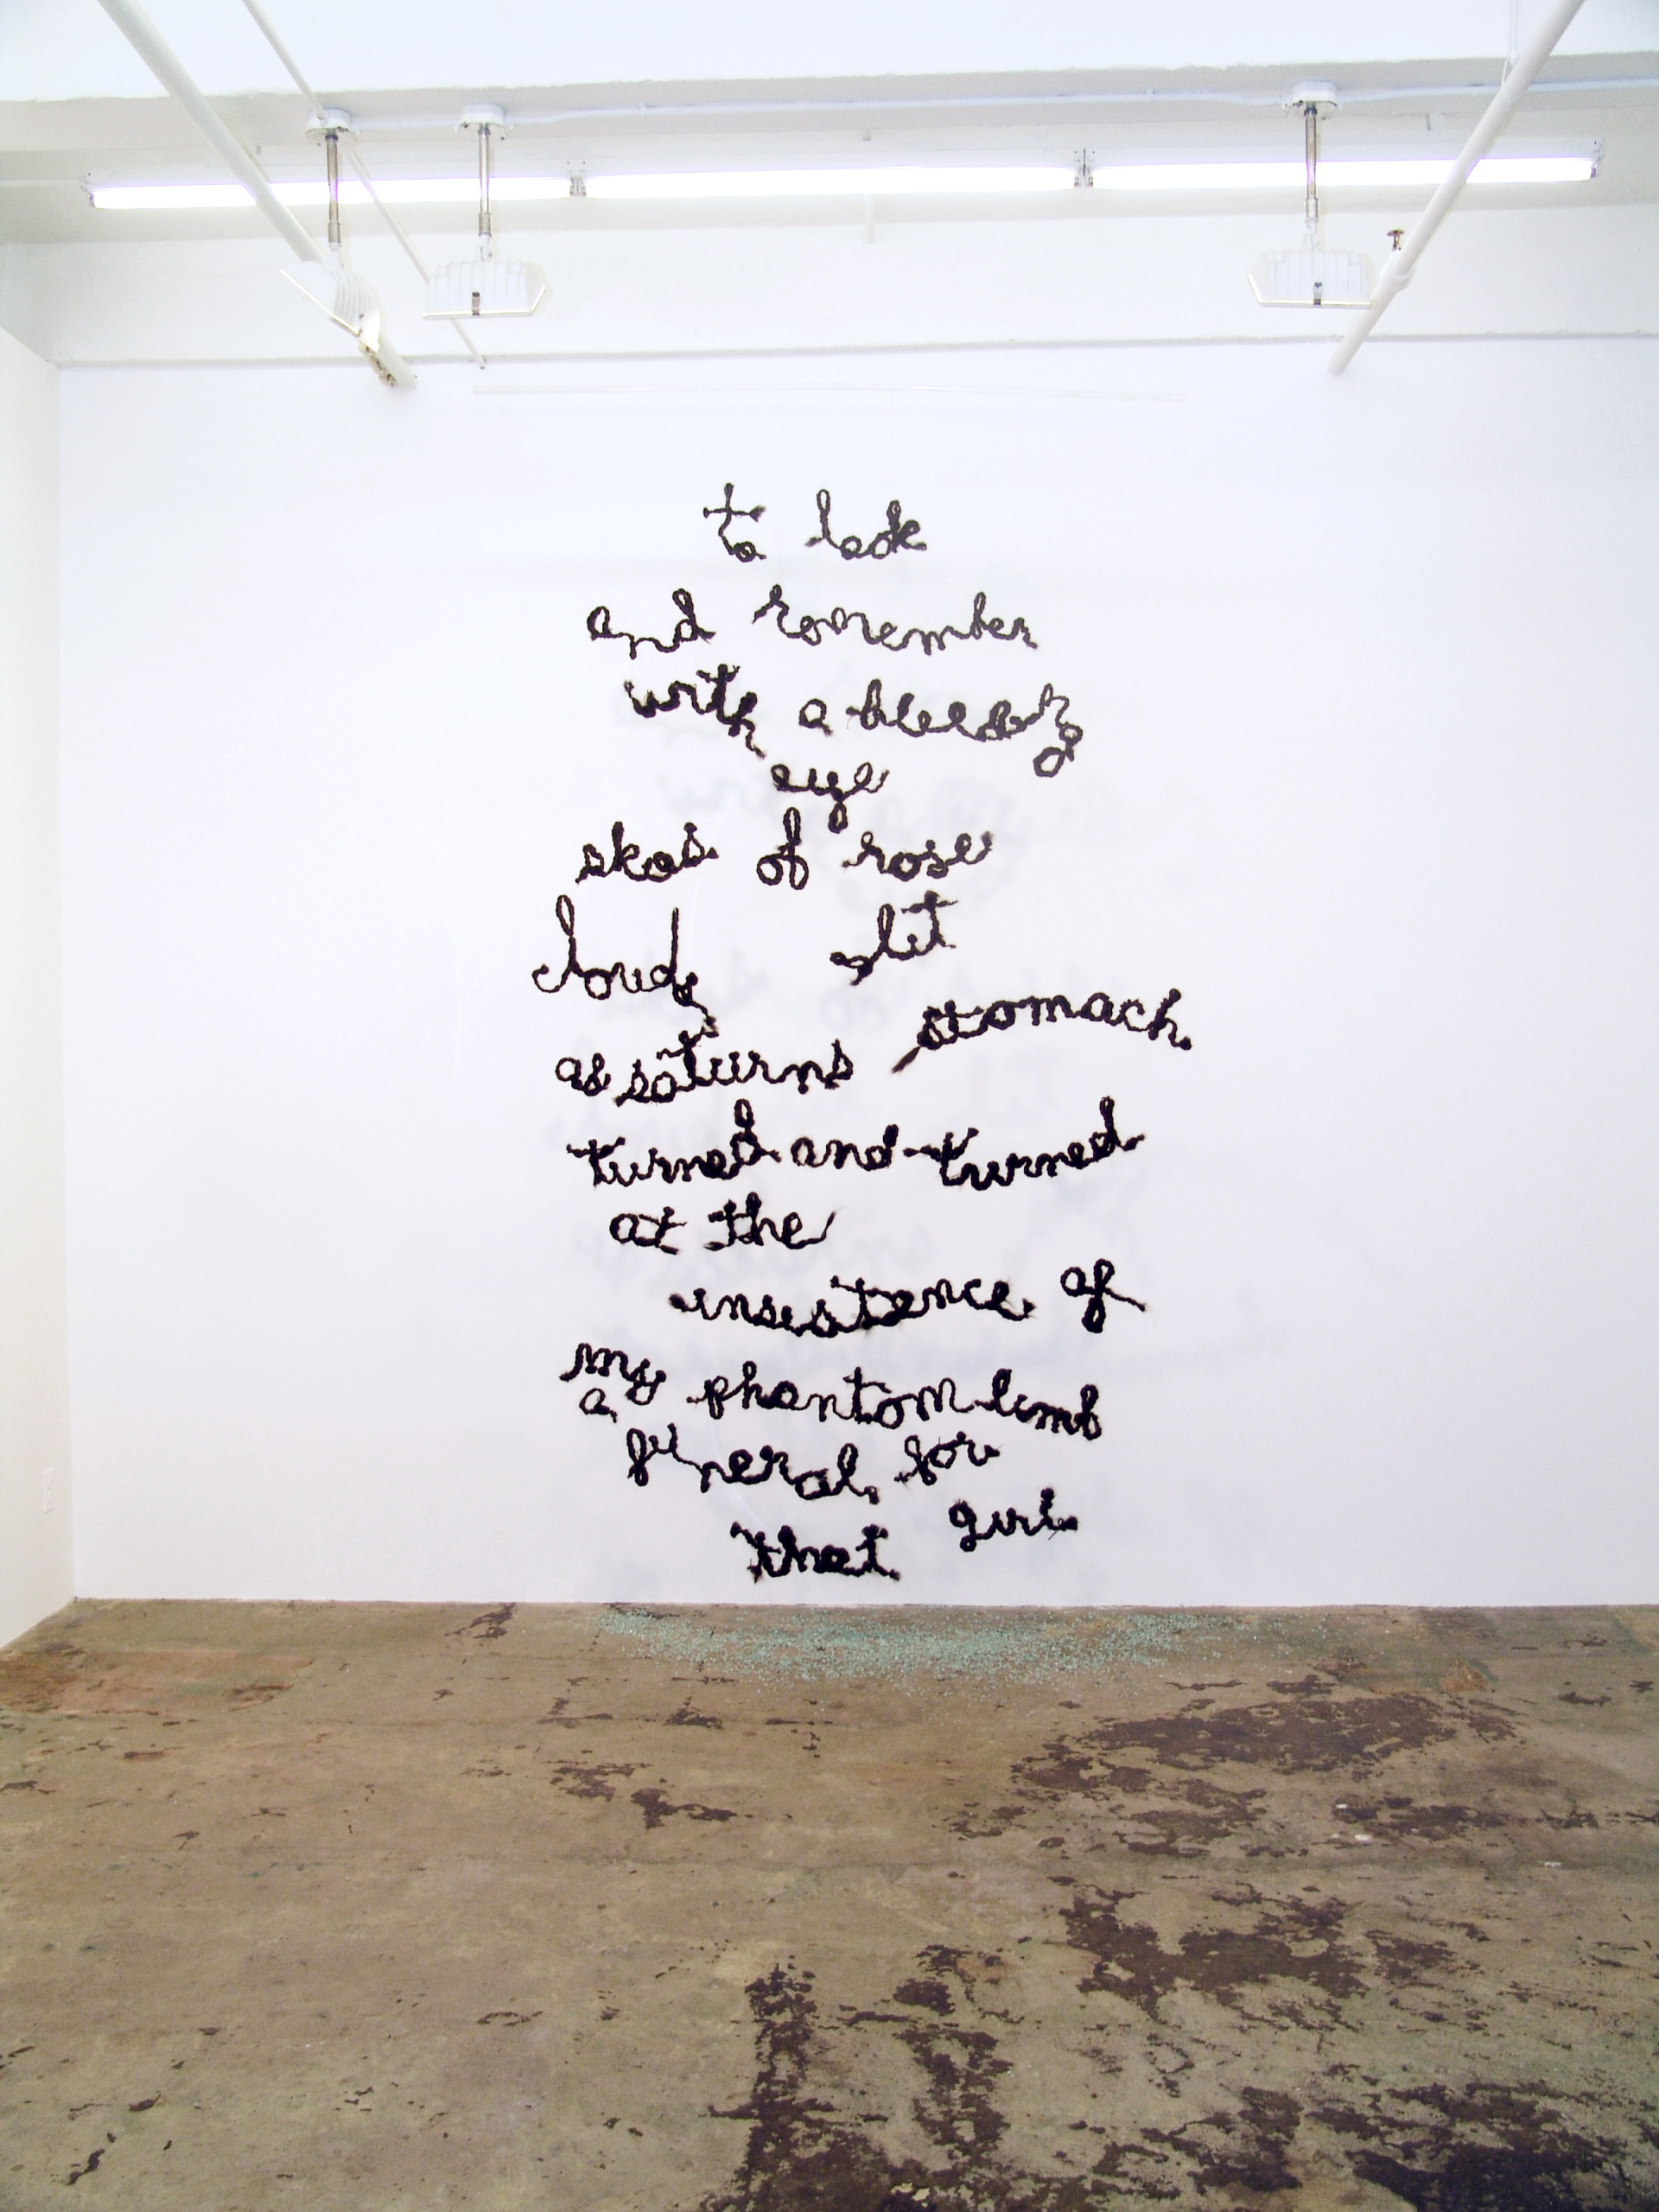 to look
and remember
with a bleeding
eye
skas of rose
cloud slit
stomach
as saturns
turned and turned
at the
insistence of
my phantom limb
a
funeral for
girl
that